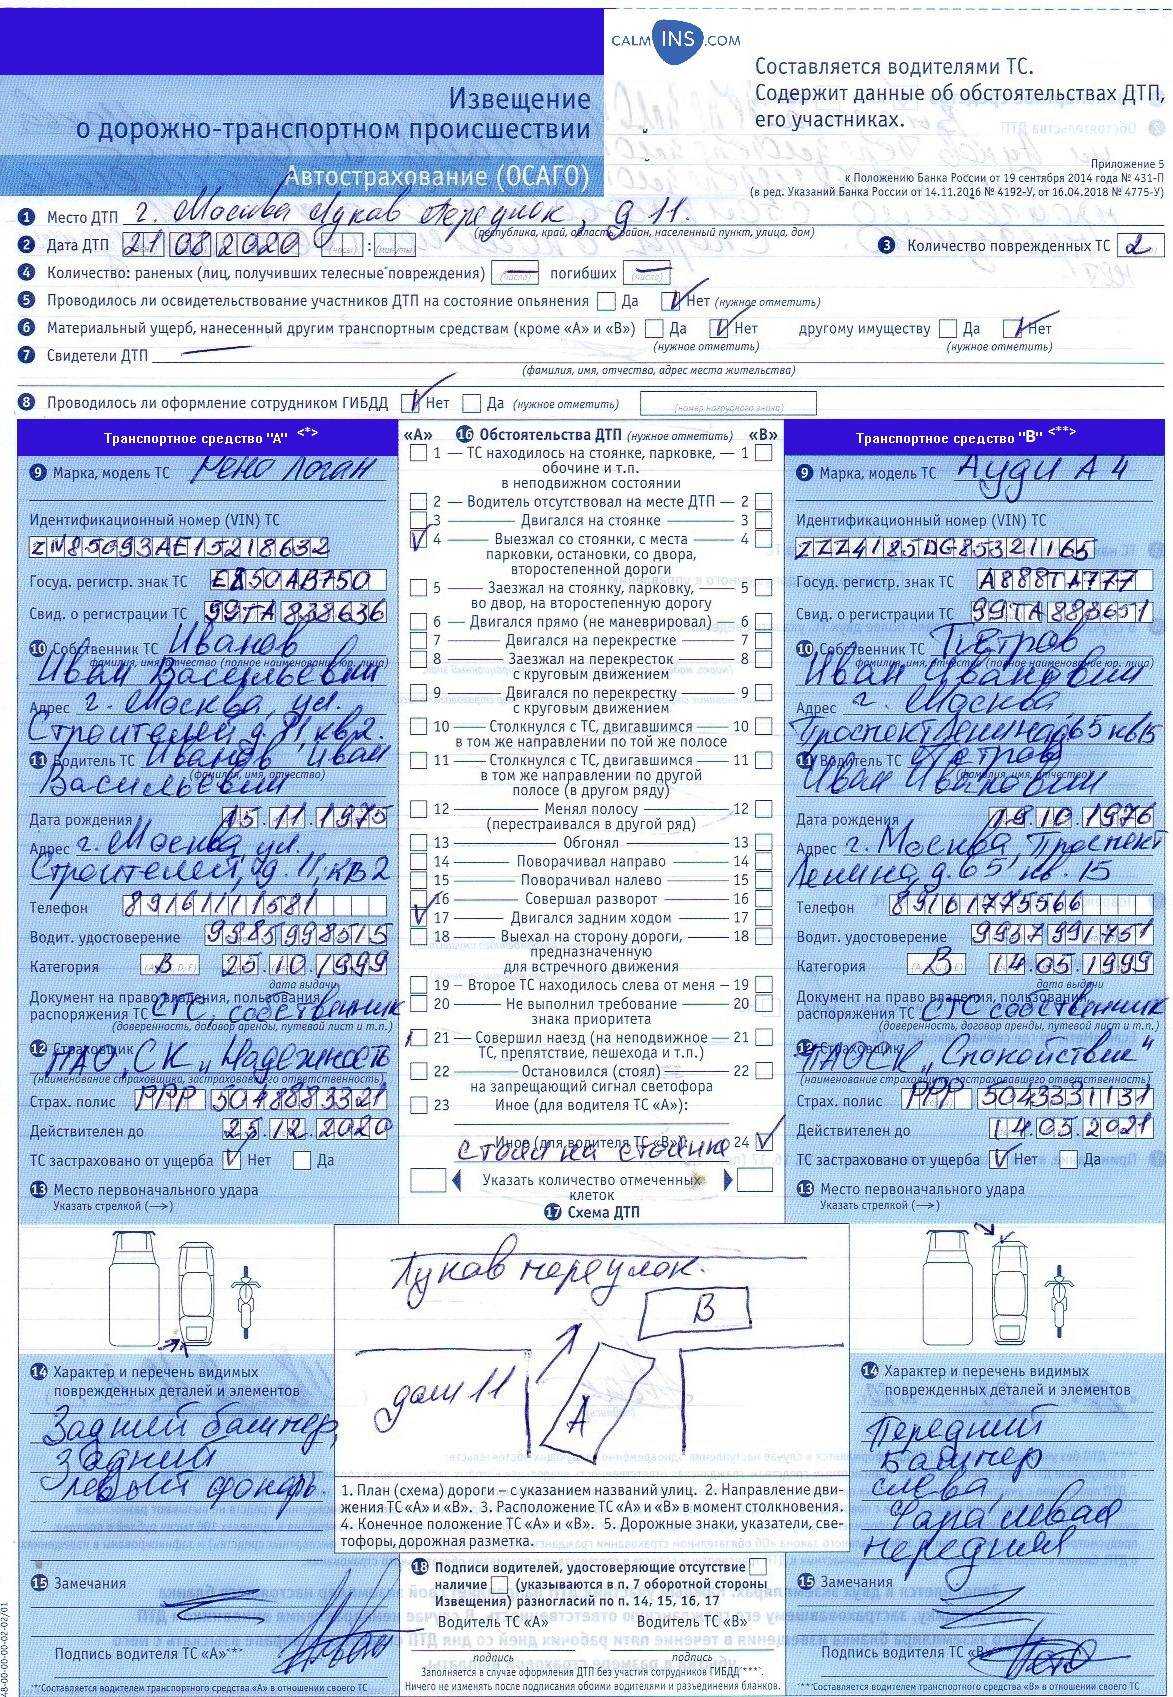 CALM INS .COM
Составляется водителями ТС.
Содержит данные об обстоятельствах ДТП,
его участниках.
Извещение
о дорожно-транспортном происшествии
Автострахование (ОСАГО)
Приложение 5
к Положению Банка России от 19 сентября 2014 года № 431-П
(в ред. Указаний Банка России от 14.11.2016 № 4192-У, от 16.04.2018 № 4775-У)
1 Место ДТП г. Москва Луков Переулок, д 11.
(республика, край, область, район, населенный пункт, улица, дом)
2 Дата ДТП 21 08 2020 (часы) : (минуты) 3 Количество поврежденных ТС 2
4 Количество: раненых (лиц, получивших телесные повреждения) — погибших —
5 Проводилось ли освидетельствование участников ДТП на состояние опьянения Да Нет (нужное отметить)
6 Материальный ущерб, нанесенный другим транспортным средствам (кроме «А» и «В») Да Нет другому имуществу Да Нет
(нужное отметить) (нужное отметить)
7 Свидетели ДТП —
(фамилия, имя, отчество, адрес места жительства)
8 Проводилось ли оформление сотрудником ГИБДД Нет Да (нужное отметить) (номер нагрудного знака)
Транспортное средство "А" <*>
9 Марка, модель ТС Рено Логан
Идентификационный номер (VIN) ТС
ZM85093AE15218632
Госуд. регистр. знак ТС Е850АВ750
Свид. о регистрации ТС 99ТА 838636
10 Собственник ТС Иванов
фамилия, имя, отчество (полное наименование юр. лица)
Иван Васильевич
Адрес г. Москва, ул.
Строителей д. 11, кв2.
11 Водитель ТС Иванов Иван
(фамилия, имя, отчество)
Васильевич
Дата рождения 15.11.1975
Адрес г. Москва, ул.
Строителей, д. 11, кв2
Телефон 89161111581
Водит. удостоверение 9985998515
Категория В 25.10.1999
дата выдачи
Документ на право владения, пользования,
распоряжения ТС СТС, собственник
(доверенность, договор аренды, путевой лист и т.п.)
12 Страховщик ПАО "СК" Надежность
(наименование страховщика, застраховавшего ответственность)
Страх. полис РРР 5048883321
Действителен до 25.12.2020
ТС застраховано от ущерба Нет Да
13 Место первоначального удара
Указать стрелкой (→)
14 Характер и перечень видимых
поврежденных деталей и элементов
Задний бампер,
Задний
левый фонарь.
15 Замечания
Подпись водителя ТС «А»***
*Составляется водителем транспортного средства «А» в отношении своего ТС
«А» 16 Обстоятельства ДТП (нужное отметить) «В»
1 — ТС находилось на стоянке, парковке, — 1
обочине и т.п.
в неподвижном состоянии
2 — Водитель отсутствовал на месте ДТП — 2
3 — Двигался на стоянке — 3
4 — Выезжал со стоянки, с места — 4
парковки, остановки, со двора,
второстепенной дороги
5 — Заезжал на стоянку, парковку, — 5
во двор, на второстепенную дорогу
6 — Двигался прямо (не маневрировал) — 6
7 — Двигался на перекрестке — 7
8 — Заезжал на перекресток — 8
с круговым движением
9 — Двигался по перекрестку — 9
с круговым движением
10 — Столкнулся с ТС, двигавшимся — 10
в том же направлении по той же полосе
11 — Столкнулся с ТС, двигавшимся — 11
в том же направлении по другой
полосе (в другом ряду)
12 — Менял полосу — 12
(перестраивался в другой ряд)
13 — Обгонял — 13
14 — Поворачивал направо — 14
15 — Поворачивал налево — 15
16 — Совершал разворот — 16
17 — Двигался задним ходом — 17
18 — Выехал на сторону дороги, — 18
предназначенную
для встречного движения
19 — Второе ТС находилось слева от меня — 19
20 — Не выполнил требование — 20
знака приоритета
21 — Совершил наезд (на неподвижное — 21
ТС, препятствие, пешехода и т.п.)
22 — Остановился (стоял) — 22
на запрещающий сигнал светофора
23 Иное (для водителя ТС «А»):
Иное (для водителя ТС «В»): 24
стоял на стоянке
Указать количество отмеченных
клеток
17 Схема ДТП
Луков переулок.
В
дом 11
А
1. План (схема) дороги – с указанием названий улиц. 2. Направление дви-
жения ТС «А» и «В». 3. Расположение ТС «А» и «В» в момент столкновения.
4. Конечное положение ТС «А» и «В». 5. Дорожные знаки, указатели, све-
тофоры, дорожная разметка.
18 Подписи водителей, удостоверяющие отсутствие
наличие (указываются в п. 7 оборотной стороны
Извещения) разногласий по п. 14, 15, 16, 17
Водитель ТС «А» Водитель ТС «В»
подпись подпись
Заполняется в случае оформления ДТП без участия сотрудников ГИБДД****.
Ничего не изменять после подписания обоими водителями и разъединения бланков.
Транспортное средство "В" <**>
9 Марка, модель ТС Ауди А4
Идентификационный номер (VIN) ТС
ZZZ4185DG85321165
Госуд. регистр. знак ТС А888ТА777
Свид. о регистрации ТС 99ТА 888651
10 Собственник ТС Петров
фамилия, имя, отчество (полное наименование юр. лица)
Иван Иванович
Адрес г. Москва
Проспект Ленина, д65 кв15
11 Водитель ТС Петров
(фамилия, имя, отчество)
Иван Иванович
Дата рождения 19.10.1976
Адрес г. Москва, Проспект
Ленина, д. 65 кв. 15
Телефон 89161775566
Водит. удостоверение 9937991751
Категория В 14.05.1999
дата выдачи
Документ на право владения, пользования,
распоряжения ТС СТС собственник
(доверенность, договор аренды, путевой лист и т.п.)
12 Страховщик ПАО СК "Спокойствие"
(наименование страховщика, застраховавшего ответственность)
Страх. полис РРР 5043331131
Действителен до 14.05.2021
ТС застраховано от ущерба Нет Да
13 Место первоначального удара
Указать стрелкой (→)
14 Характер и перечень видимых
поврежденных деталей и элементов
Передний
Бампер
слева,
Фара левая
передняя
15 Замечания
Подпись водителя ТС «В»
***Составляется водителем транспортного средства «В» в отношении своего ТС